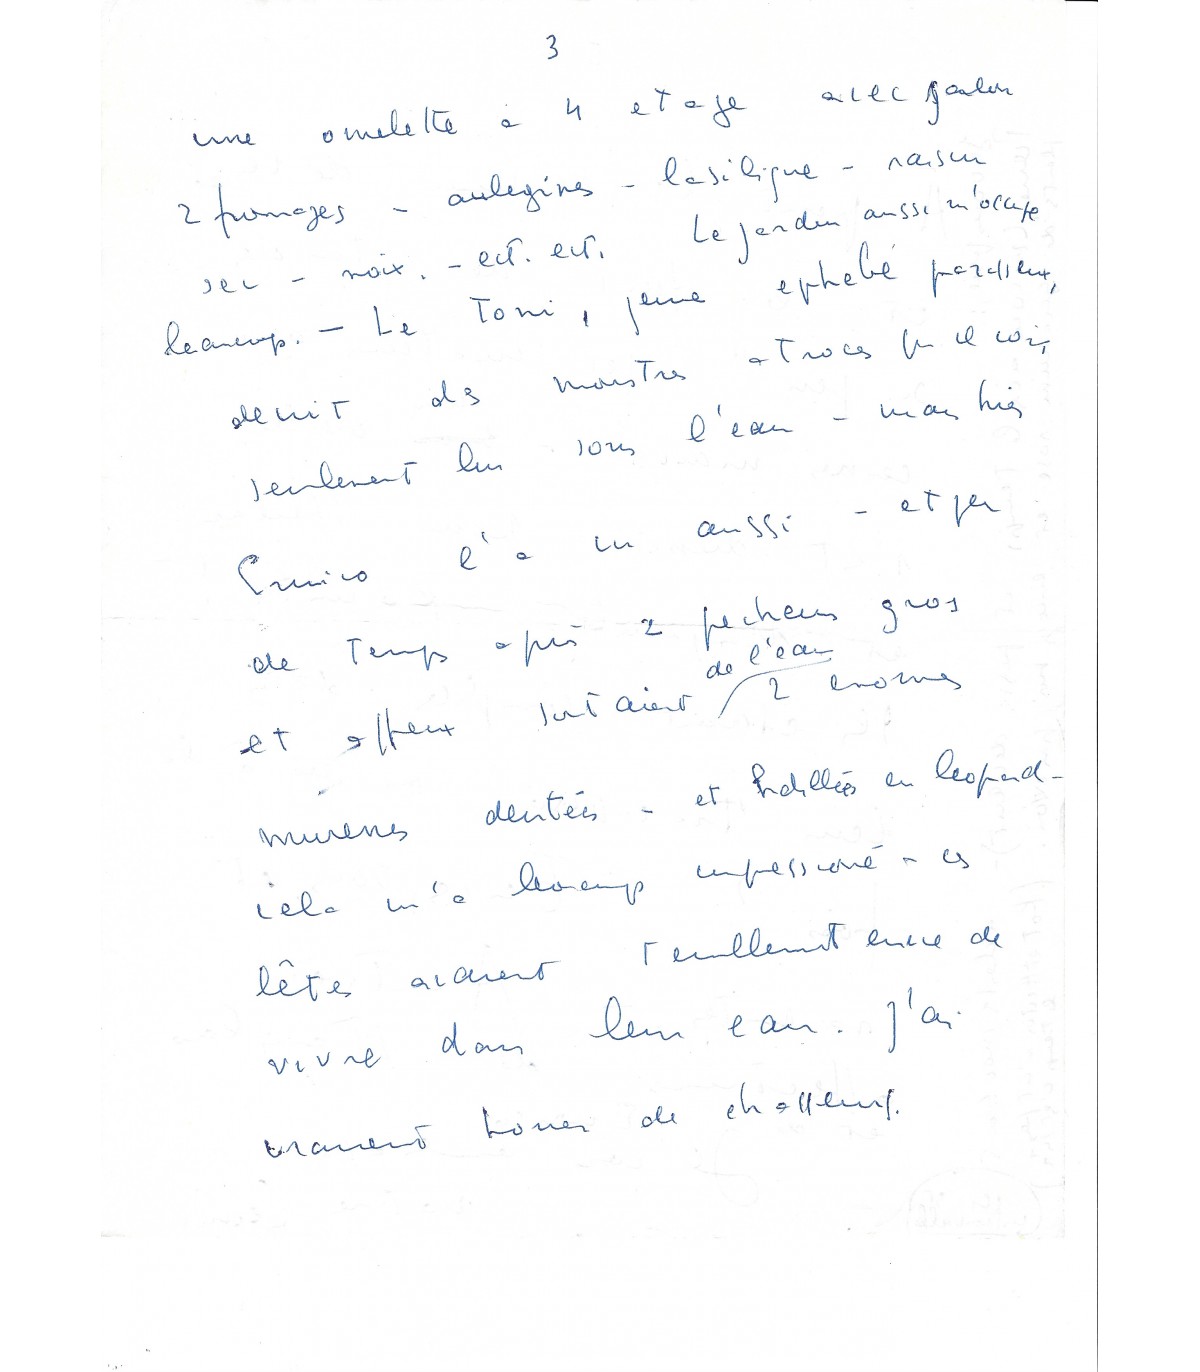 3
une omelette a 4 etage avec
2 fromages - aubegines - basilique - raisin
sec - noix. - ect. ect. Le jardin aussi m'occupe
beaucoup. - Le Toni, jeune ephebé paresseux,
decrit des monstres atroces qu'il voit
seulement lui sous l'eau - mais hier
Enrico l'a vu aussi - et peu
de temps après 2 pecheurs gros
et affreux sortaient de l'eau 2 enormes
murenes dentées - et habillées en leopard -
cela m'a beaucoup impessioné - ces
bêtes avaient tenllement envie de
vivre dans leur eau. J'ai
vraiment de chasseurs.